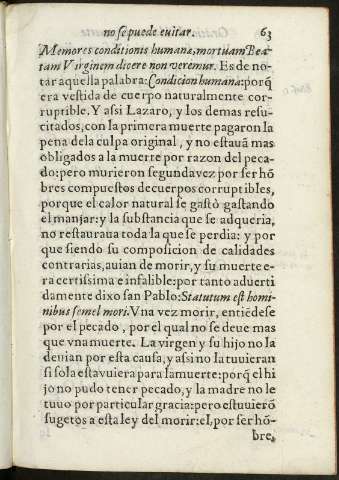 no se puede euitar. 63
Memores conditionis humanæ, mortuam Bea-
tam Virginem dicere non veremur. Es de no-
tar aquella palabra: Condicion humana: porq̃
era vestida de cuerpo naturalmente cor-
ruptible. Y assi Lazaro, y los demas resu-
citados, con la primera muerte pagaron la
pena dela culpa original, y no estauã mas
obligados a la muerte por razon del peca-
do: pero murieron segunda vez por ser hõ
bres compuestos de cuerpos corruptibles,
porque el calor natural se gastò gastando
el manjar: y la substancia que se adqueria,
no restauraua toda la que se perdia: y por
que siendo su composicion de calidades
contrarias, auian de morir, y su muerte e-
ra certissima e infalible: por tanto aduerti
damente dixo san Pablo: Statutum est homi-
nibus semel mori. Vna vez morir, entiẽdese
por el pecado, por el qual no se deue mas
que vna muerte. La virgen y su hijo no la
deuian por esta causa, y assi no la tuuieran
si sola estauuiera para la muerte: porq̃ el hi
jo no pudo tener pecado, y la madre no le
tuuo por particular gracia: pero estuuierõ
sugetos a esta ley del morir: el, por ser hõ-
bre,